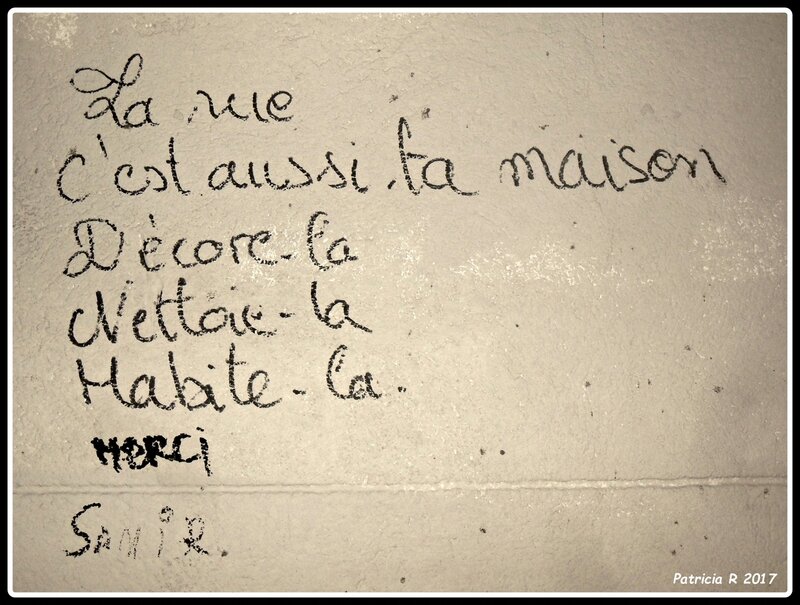 La rue
c'est aussi ta maison
Décore-la
Nettoie-la
Habite-la.
MERCI
SAMIR
Patricia R 2017